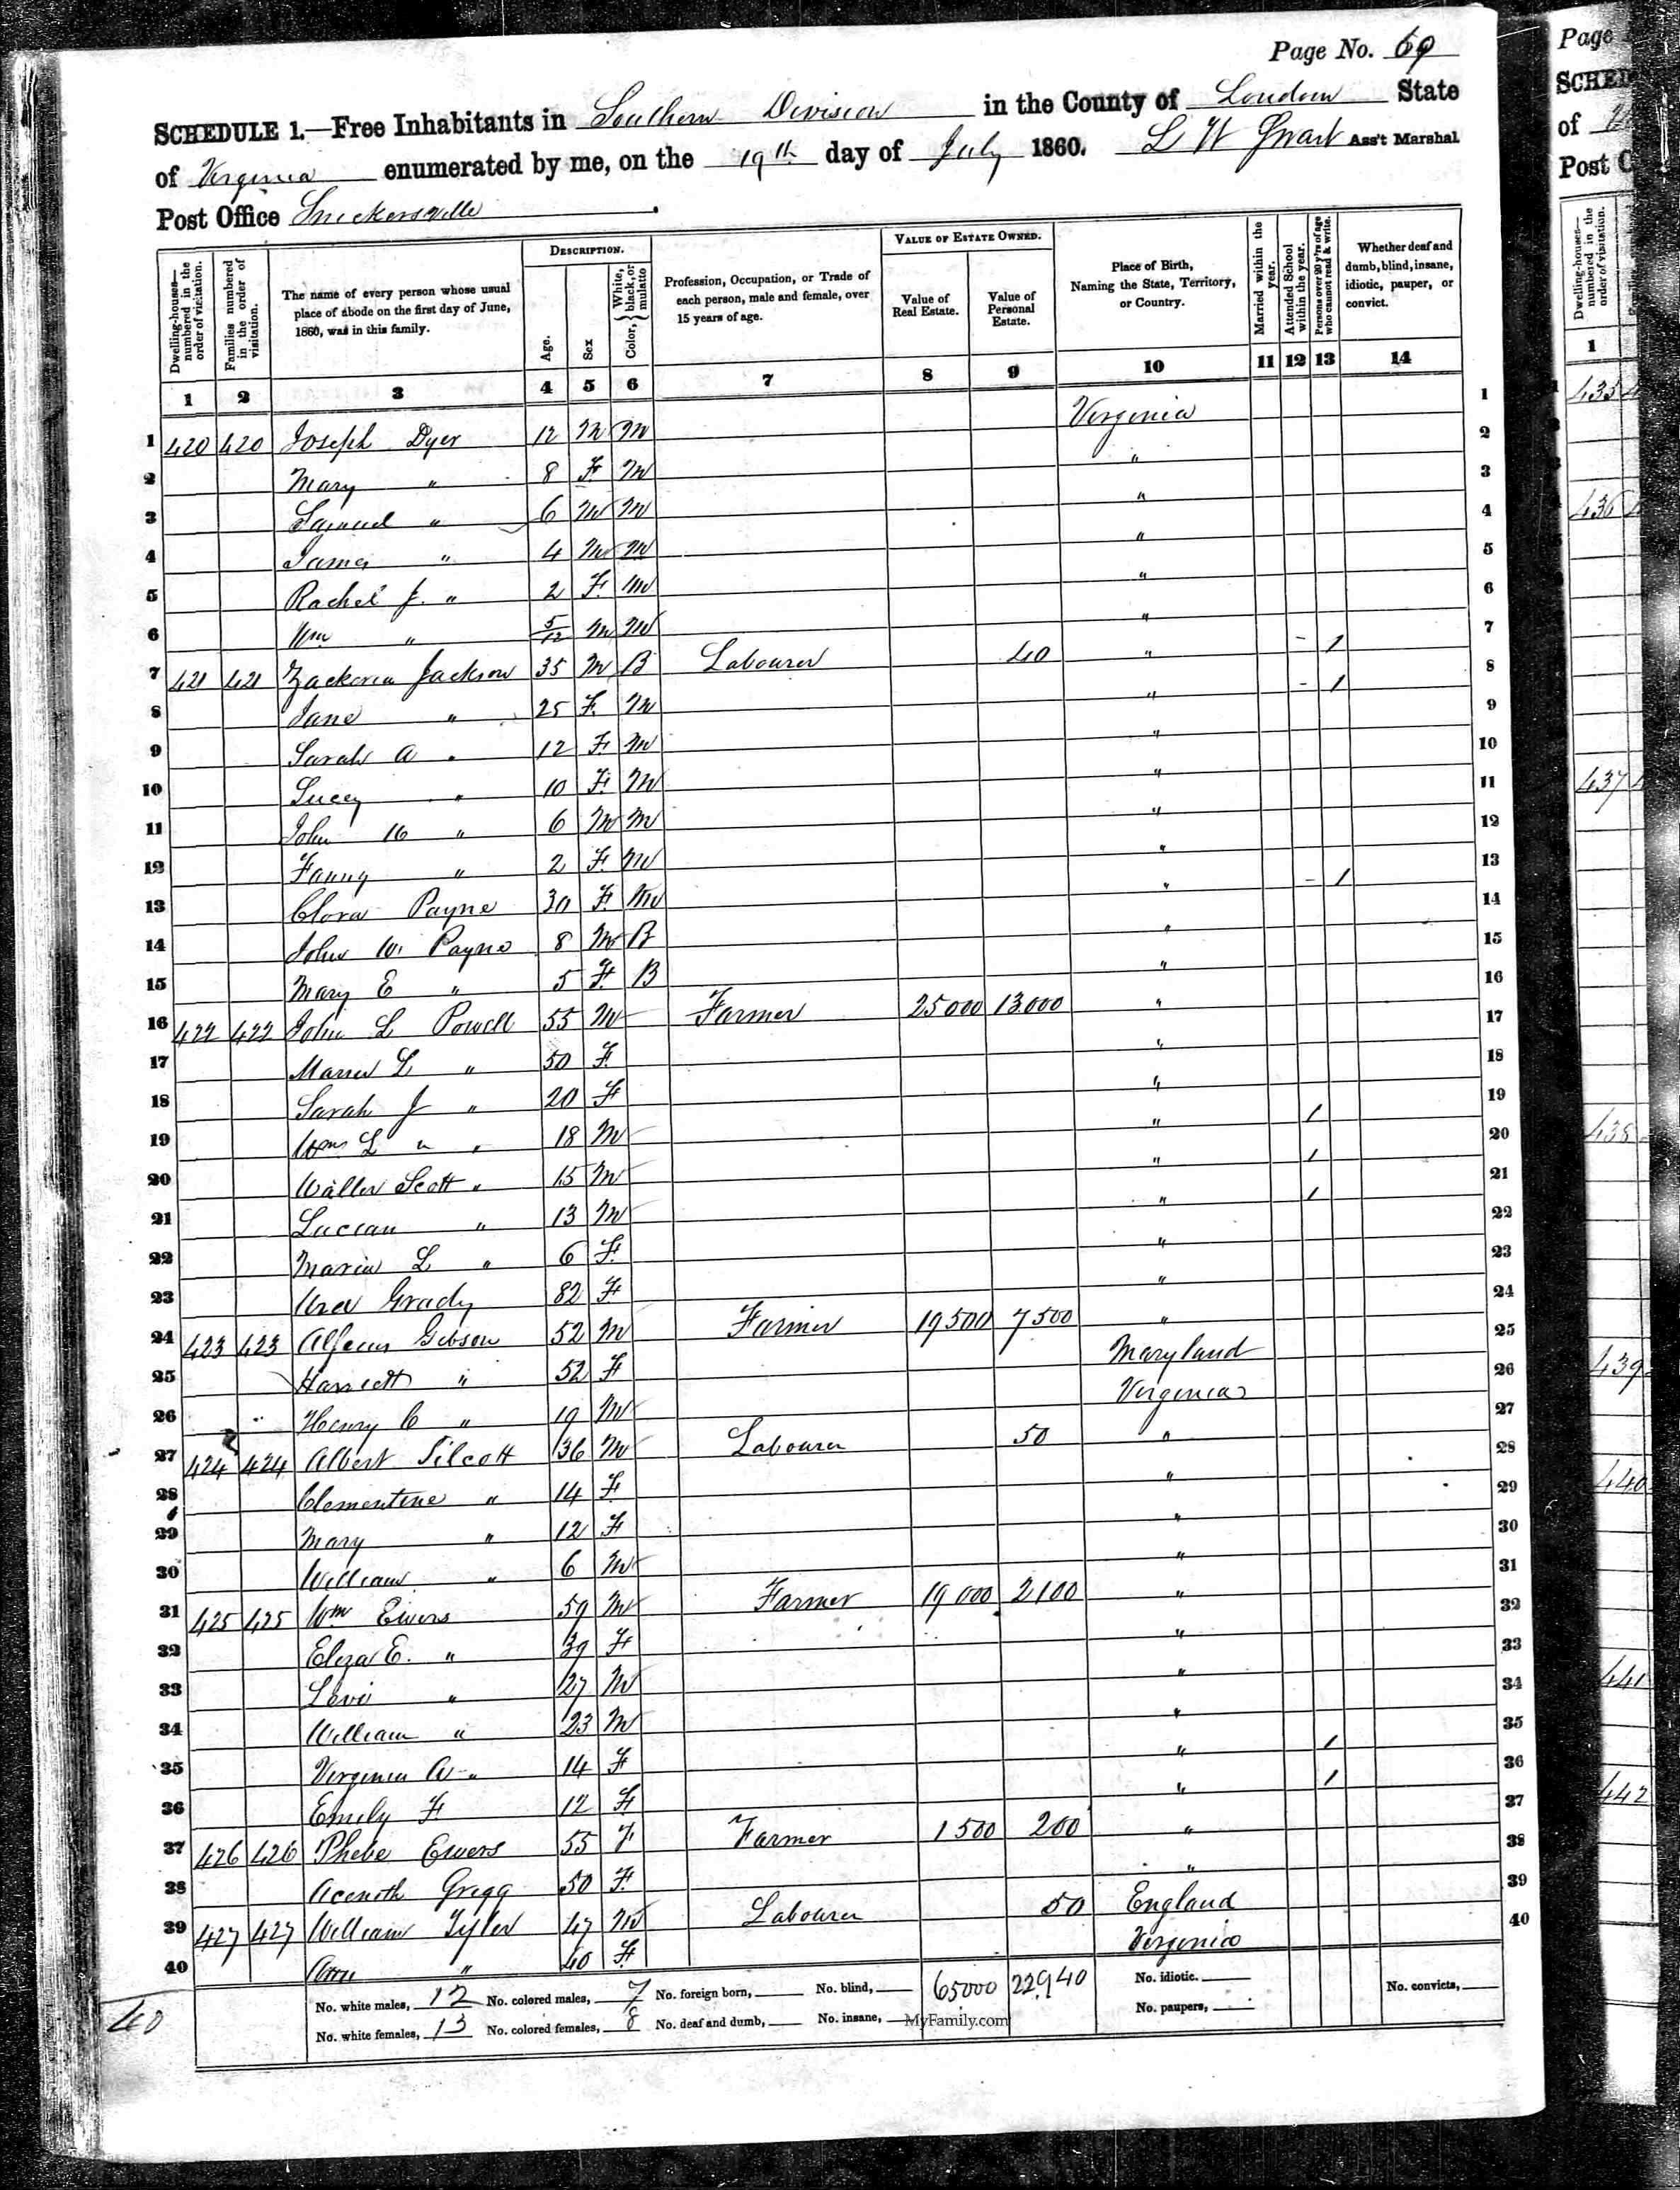 Page No. 69
SCHEDULE 1.—Free Inhabitants in Southern Division in the County of Loudoun State
of Virginia enumerated by me, on the 19th day of July 1860. Ass't Marshal
Post Office Snickersville.
Dwelling-houses—numbered in the order of visitation.
Families numbered in the order of visitation.
The name of every person whose usual place of abode on the first day of June, 1860, was in this family.
DESCRIPTION.
Age.
Sex
Color, { White, black, or mulatto
Profession, Occupation, or Trade of each person, male and female, over 15 years of age.
VALUE OF ESTATE OWNED.
Value of Real Estate.
Value of Personal Estate.
Place of Birth, Naming the State, Territory, or Country.
Married within the year.
Attended School within the year.
Persons over 20 y'rs of age who cannot read & write.
Whether deaf and dumb, blind, insane, idiotic, pauper, or convict.
1 2 3 4 5 6 7 8 9 10 11 12 13 14
1 420 420 Joseph Dyer 12 M M Virginia 1
2 Mary " 8 F M " 2
3 Samuel " 6 M M " 3
4 James " 4 M M " 4
5 Rachel J. " 2 F M " 5
6 Wm " 5/12 M M " 6
7 421 421 Zackeria Jackson 35 M B Labourer 40 " - / 7
8 Jane " 25 F M " - / 8
9 Sarah A " 12 F M " 9
10 Lucy " 10 F M " 10
11 John " 6 M M " 11
12 Fanny " 2 F M " 12
13 Clora Payne 30 F M " - / 13
14 John W. Payne 8 M B " 14
15 Mary E " 5 F B " 15
16 422 422 John L Powell 55 M Farmer 25000 13000 " 16
17 L " 50 F " 17
18 Sarah J " 20 F " 18
19 Wm L " " 18 M " / 19
20 Walter Scott " 15 M " / 20
21 Lucian " 13 M " / 21
22 Maria L " 6 F " 22
23 Grady 82 F " 23
24 423 423 Alfeus Gibson 52 M Farmer 19500 7500 " 24
25 Harriett " 52 F Maryland 25
26 Henry C " 19 M Virginia 26
27 424 424 Albert Silcott 36 M Labourer 50 " 27
28 Clementine " 14 F " 28
29 Mary " 12 F " 29
30 William " 6 M " 30
31 425 425 Wm Ewers 59 M Farmer 19000 2100 " 31
32 Eliza E. " 39 F " 32
33 Levi " 27 M " 33
34 William " 23 M " 34
35 Virginia A " 14 F " / 35
36 Emily F 12 F " / 36
37 426 426 Phebe Ewers 55 F Farmer 1500 200 " 37
38 Acenoth Gregg 50 F " 38
39 427 427 William Tyler 47 M Labourer 50 England 39
40 Ann " 40 F Virginia 40
40
No. white males, 12 No. colored males, 7 No. foreign born, No. blind, 65000 22,940 No. idiotic. No. convicts,
No. white females, 13 No. colored females, 8 No. deaf and dumb, No. insane, No. paupers,
MyFamily.com
Page
SCHED
of
Post O
Dwelling-houses—numbered in the order of visitation.
1
435
436
437
438
439
440
441
442